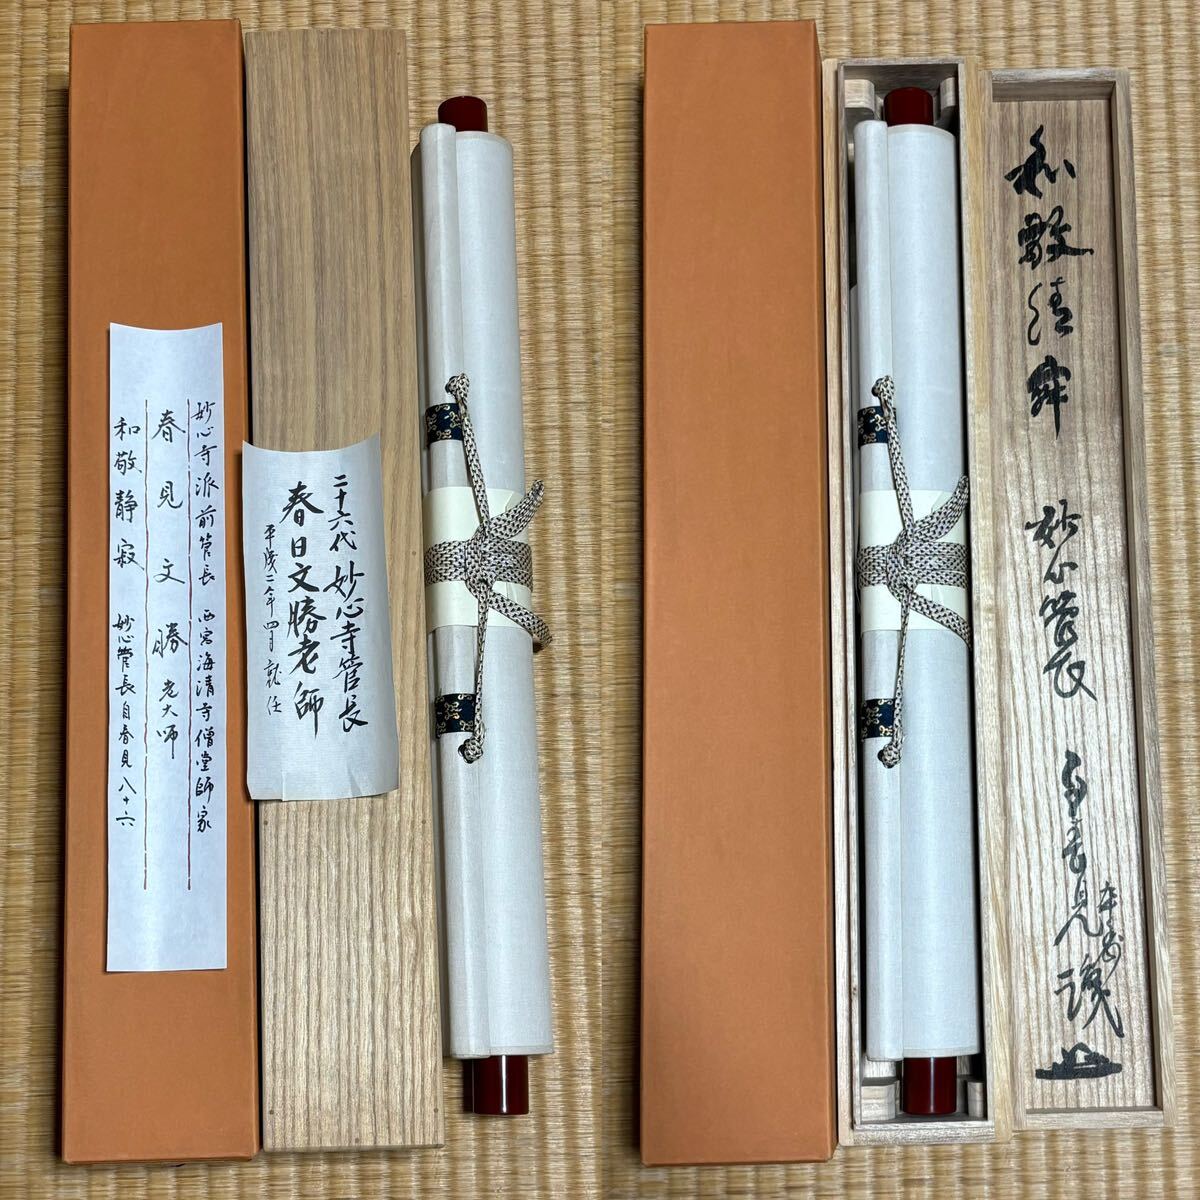 妙心寺派前管長 西宮海清寺僧堂師家
春見文勝老大師
和敬静寂 妙心管長自春見八十六
二十六代 妙心寺管長
春日文勝老師
平成二年四月就任
和敬清寂 妙心管長 自春見